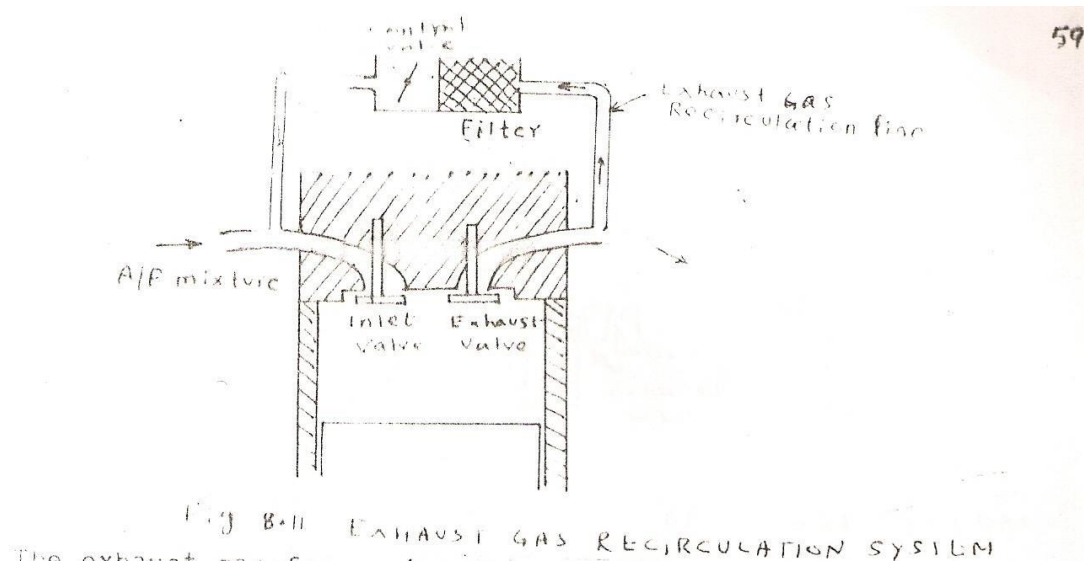 59
Exhaust GAS
Recirculation line
Filter
A/F mixture
Inlet
Valve
Exhaust
Valve
Fig 8.11 EXHAUST GAS RECIRCULATION SYSTEM
The exhaust gas